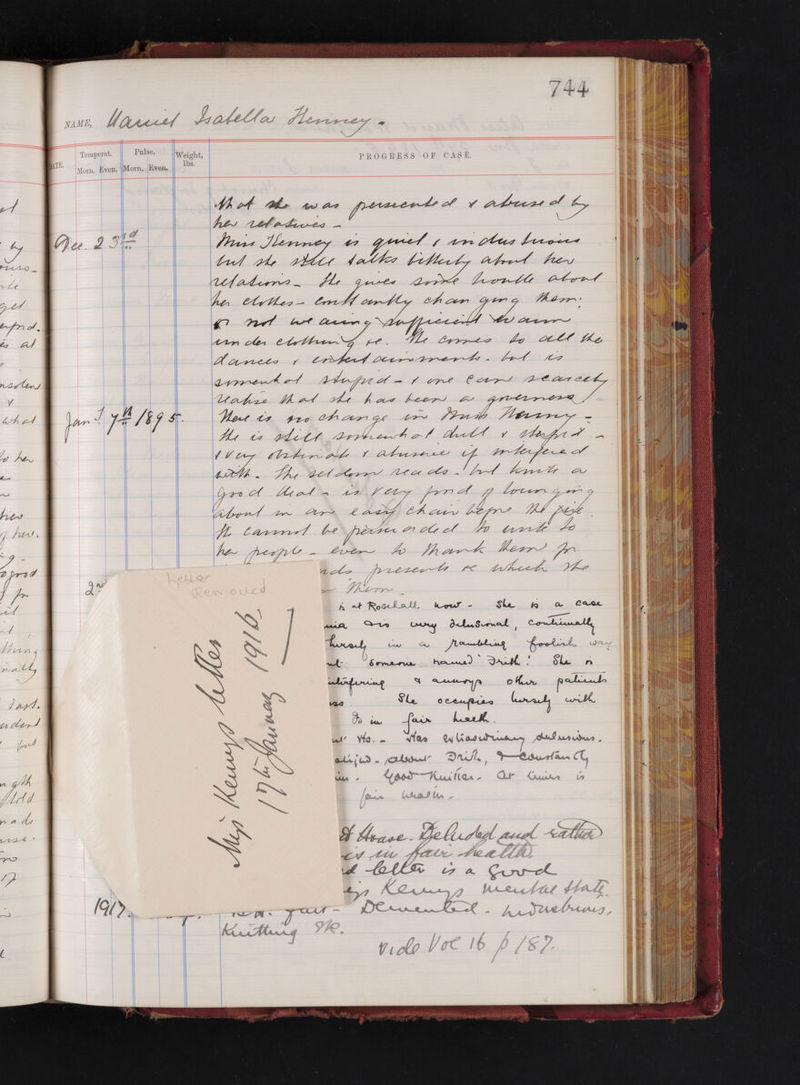 744
NAME, Isabella Kenney -
DATE. Temperat. Pulse. Weight, lbs. PROGRESS OF CASE.
Morn. Even. Morn. Even.
that she was persecuted & abused by
her relatives -
Dec. 23rd Miss Kenney is quiet & industrious
but she still talks bitterly about her
relations - She gives some trouble about
her clothes - constantly changing them:
or not wearing sufficient warm
under clothing &c. She comes to all the
dances & entertainments - but is
somewhat stupid - & one can scarcely
realise that she has been a governess
Jany 7th 1895. There is no change in Miss Kenney -
She is still somewhat dull & stupid -
& very obstinate & abusive if interfered
with. She seldom reads - but knits a
good deal - is very fond of lounging
about in an easy chair before the fire
She cannot be persuaded to write to
her people - even to thank them for
presents &c which she
them
is at Rosehall now - She is a case
is very delusional, continually
herself in a rambling foolish way
someone named 'Drith'! She is
interfering & annoys other patients
She occupies herself with
Is in fair health.
Has extraordinary delusions.
about Drith, & constantly
Good knitter. At times is
fair health.
House. Deluded and rather
is in fair health
letter is a good
Kenneys mental state.
1917. Demented. industrious.
Knitting &c.
Vide Vol 16 p 187.
Letter
Removed
Miss Kenneys letter
17th January 1916